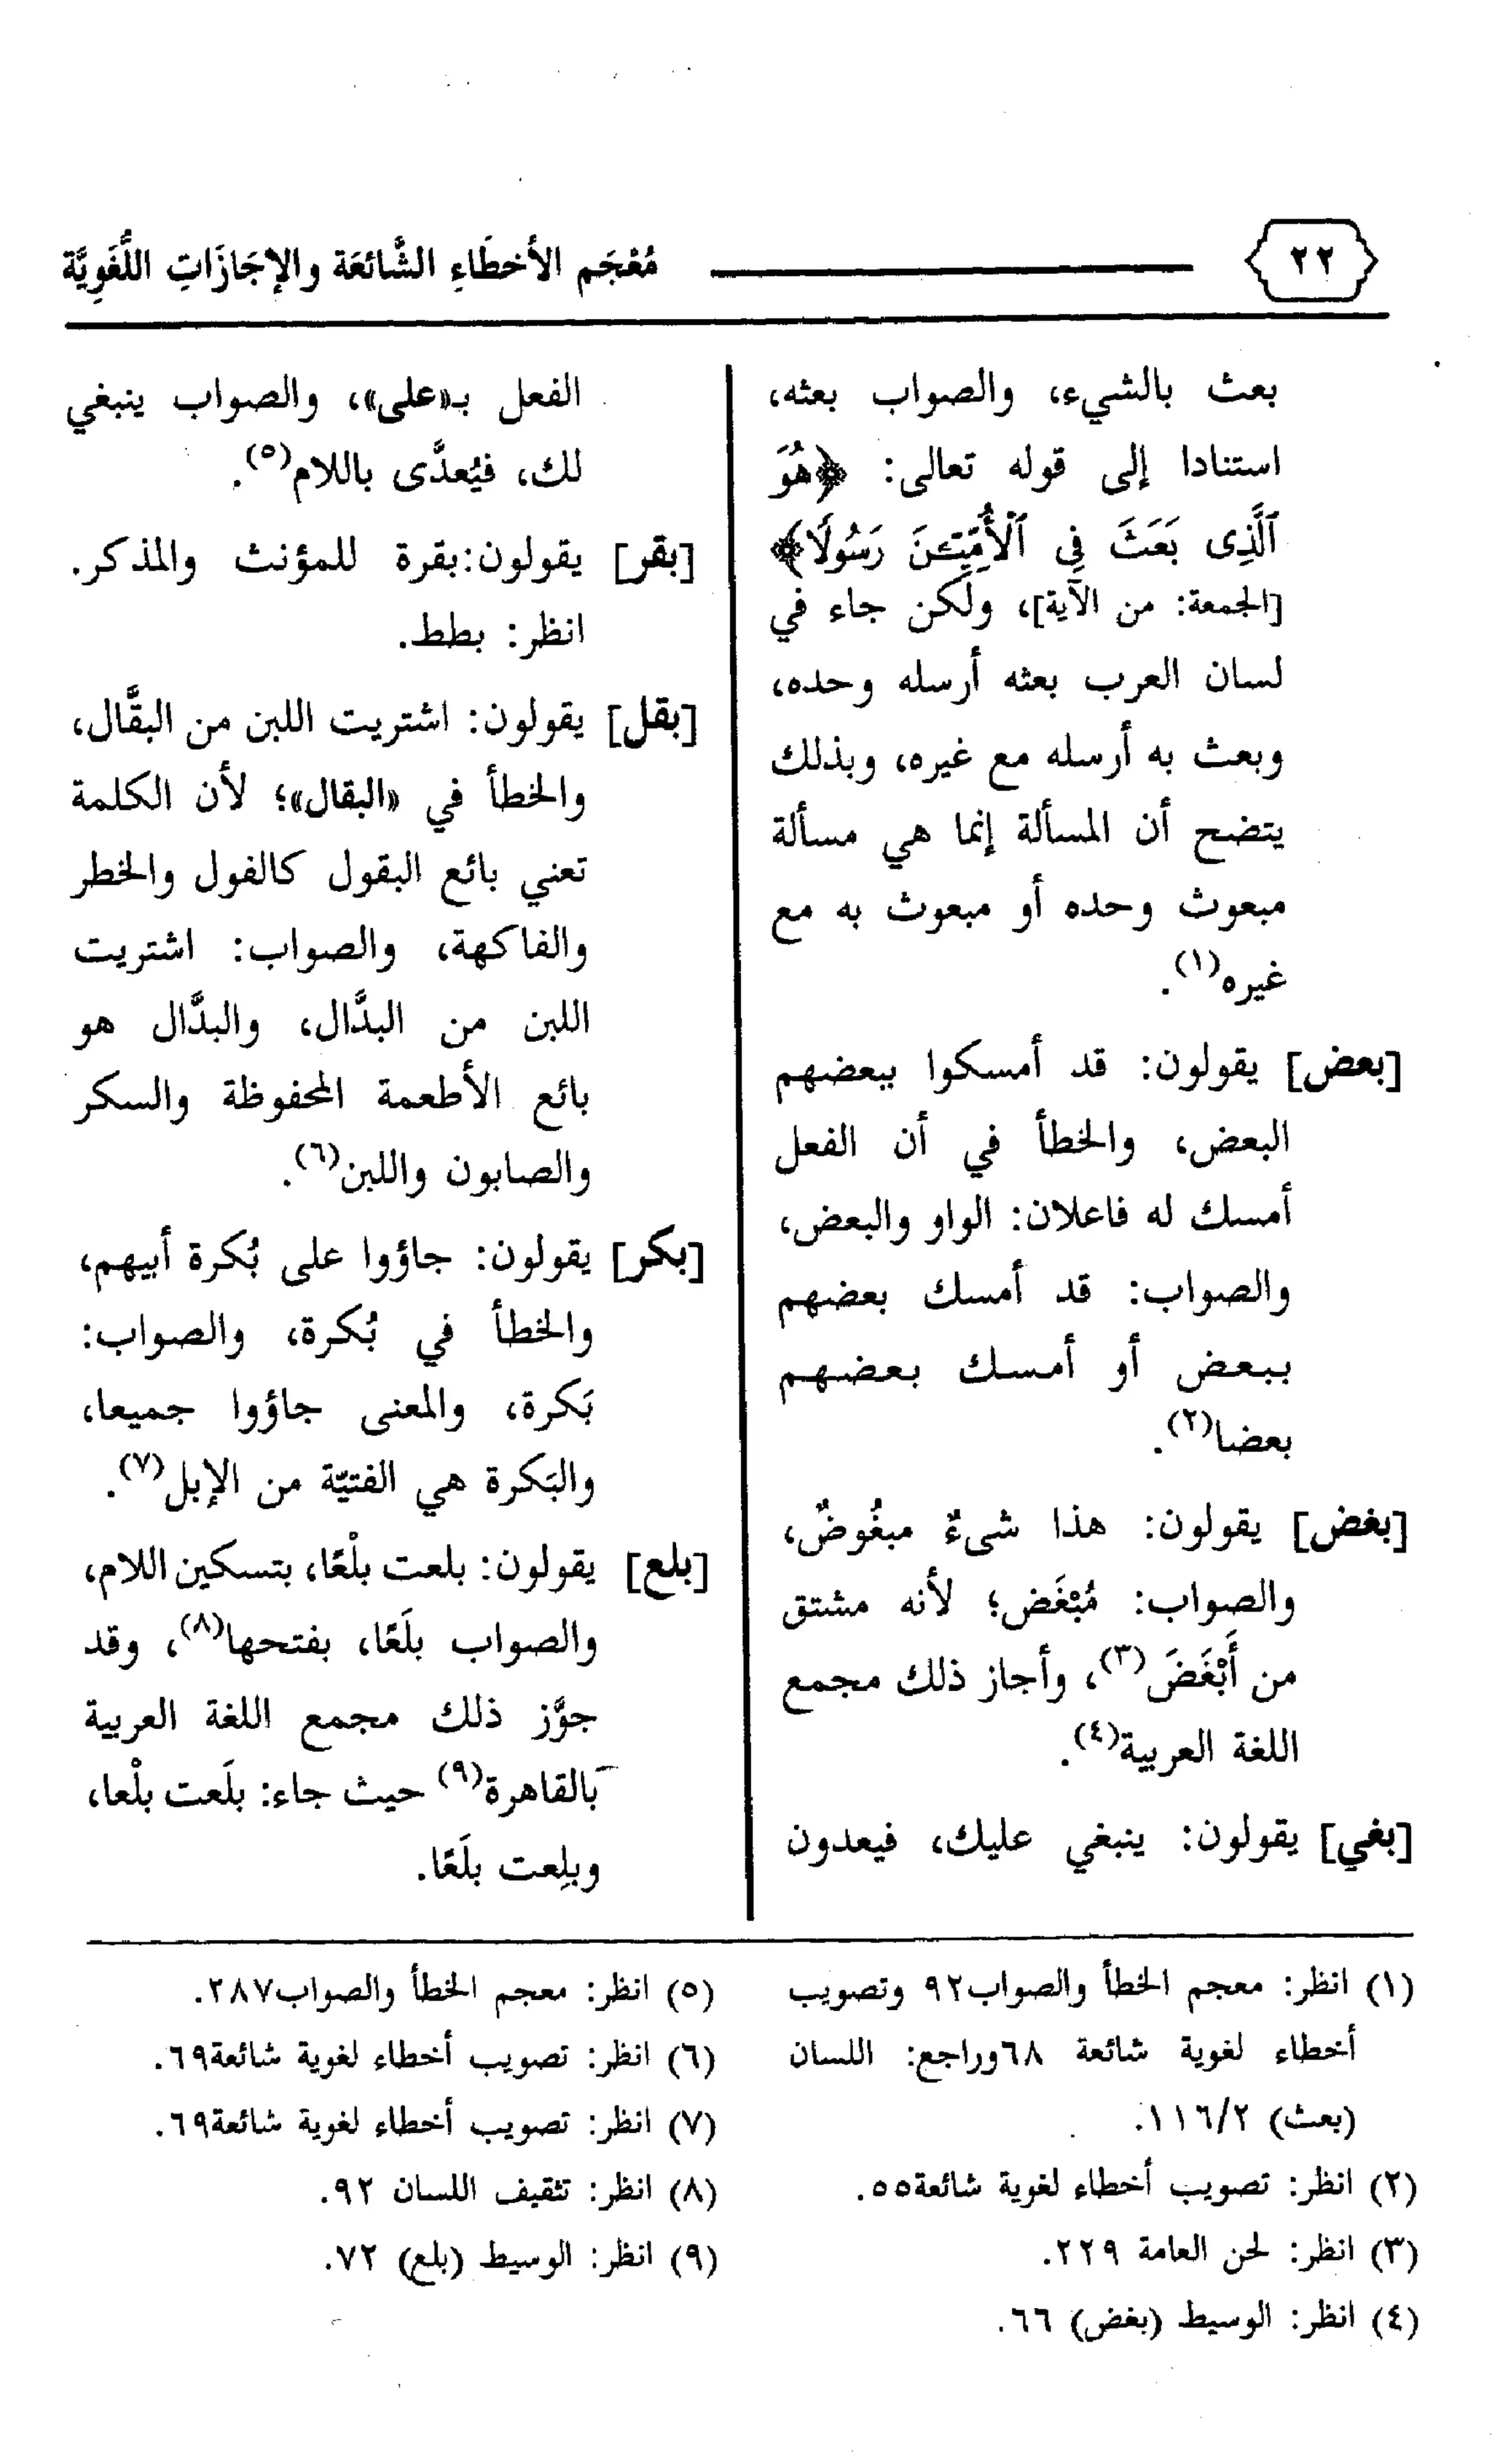 ٢٢
مُعْجَم الأخطَاءِ الشَّائعَة والإجَازَاتِ اللُّغَوِيَّة
بعث بالشيء، والصواب بعثه،
استنادا إلى قوله تعالى: ﴿هُوَ
ٱلَّذِى بَعَثَ فِى ٱلْأُمِّيِّـۧنَ رَسُولًا﴾
[الجمعة: من الآية]، ولكن جاء في
لسان العرب بعثه أرسله وحده،
وبعث به أرسله مع غيره، وبذلك
يتضح أن المسألة إنما هي مسألة
مبعوث وحده أو مبعوث به مع
غيره(١).
[بعض] يقولون: قد أمسكوا ببعضهم
البعض، والخطأ في أن الفعل
أمسك له فاعلان: الواو والبعض،
والصواب: قد أمسك بعضهم
ببعض أو أمسك بعضهم
بعضا(٢).
[بغض] يقولون: هذا شىءٌ مبغُوضٌ،
والصواب: مُبْغَض؛ لأنه مشتق
من أَبْغَضَ(٣)، وأجاز ذلك مجمع
اللغة العربية(٤).
[بغي] يقولون: ينبغي عليك، فيعدون
الفعل بـ«على»، والصواب ينبغي
لك، فيُعدَّى باللام(٥).
[بقر] يقولون:بقرة للمؤنث والمذكر.
انظر: بطط.
[بقل] يقولون: اشتريت اللبن من البقَّال،
والخطأ في «البقال»؛ لأن الكلمة
تعني بائع البقول كالفول والخطر
والفاكهة، والصواب: اشتريت
اللبن من البدَّال، والبدَّال هو
بائع الأطعمة المحفوظة والسكر
والصابون واللبن(٦).
[بكر] يقولون: جاؤوا على بُكرة أبيهم،
والخطأ في بُكرة، والصواب:
بَكرة، والمعنى جاؤوا جميعا،
والبَكرة هي الفتيّة من الإبل(٧).
[بلع] يقولون: بلعت بلْعًا، بتسكين اللام،
والصواب بلَعًا، بفتحها(٨)، وقد
جوَّز ذلك مجمع اللغة العربية
بالقاهرة(٩) حيث جاء: بلَعت بلْعا،
وبلِعت بلَعًا.
(١) انظر: معجم الخطأ والصواب٩٢ وتصويب
أخطاء لغوية شائعة ٦٨وراجع: اللسان
(بعث) ١١٦/٢.
(٢) انظر: تصويب أخطاء لغوية شائعة٥٥.
(٣) انظر: لحن العامة ٢٢٩.
(٤) انظر: الوسيط (بغض) ٦٦.
(٥) انظر: معجم الخطأ والصواب٢٨٧.
(٦) انظر: تصويب أخطاء لغوية شائعة٦٩.
(٧) انظر: تصويب أخطاء لغوية شائعة٦٩.
(٨) انظر: تثقيف اللسان ٩٢.
(٩) انظر: الوسيط (بلع) ٧٢.